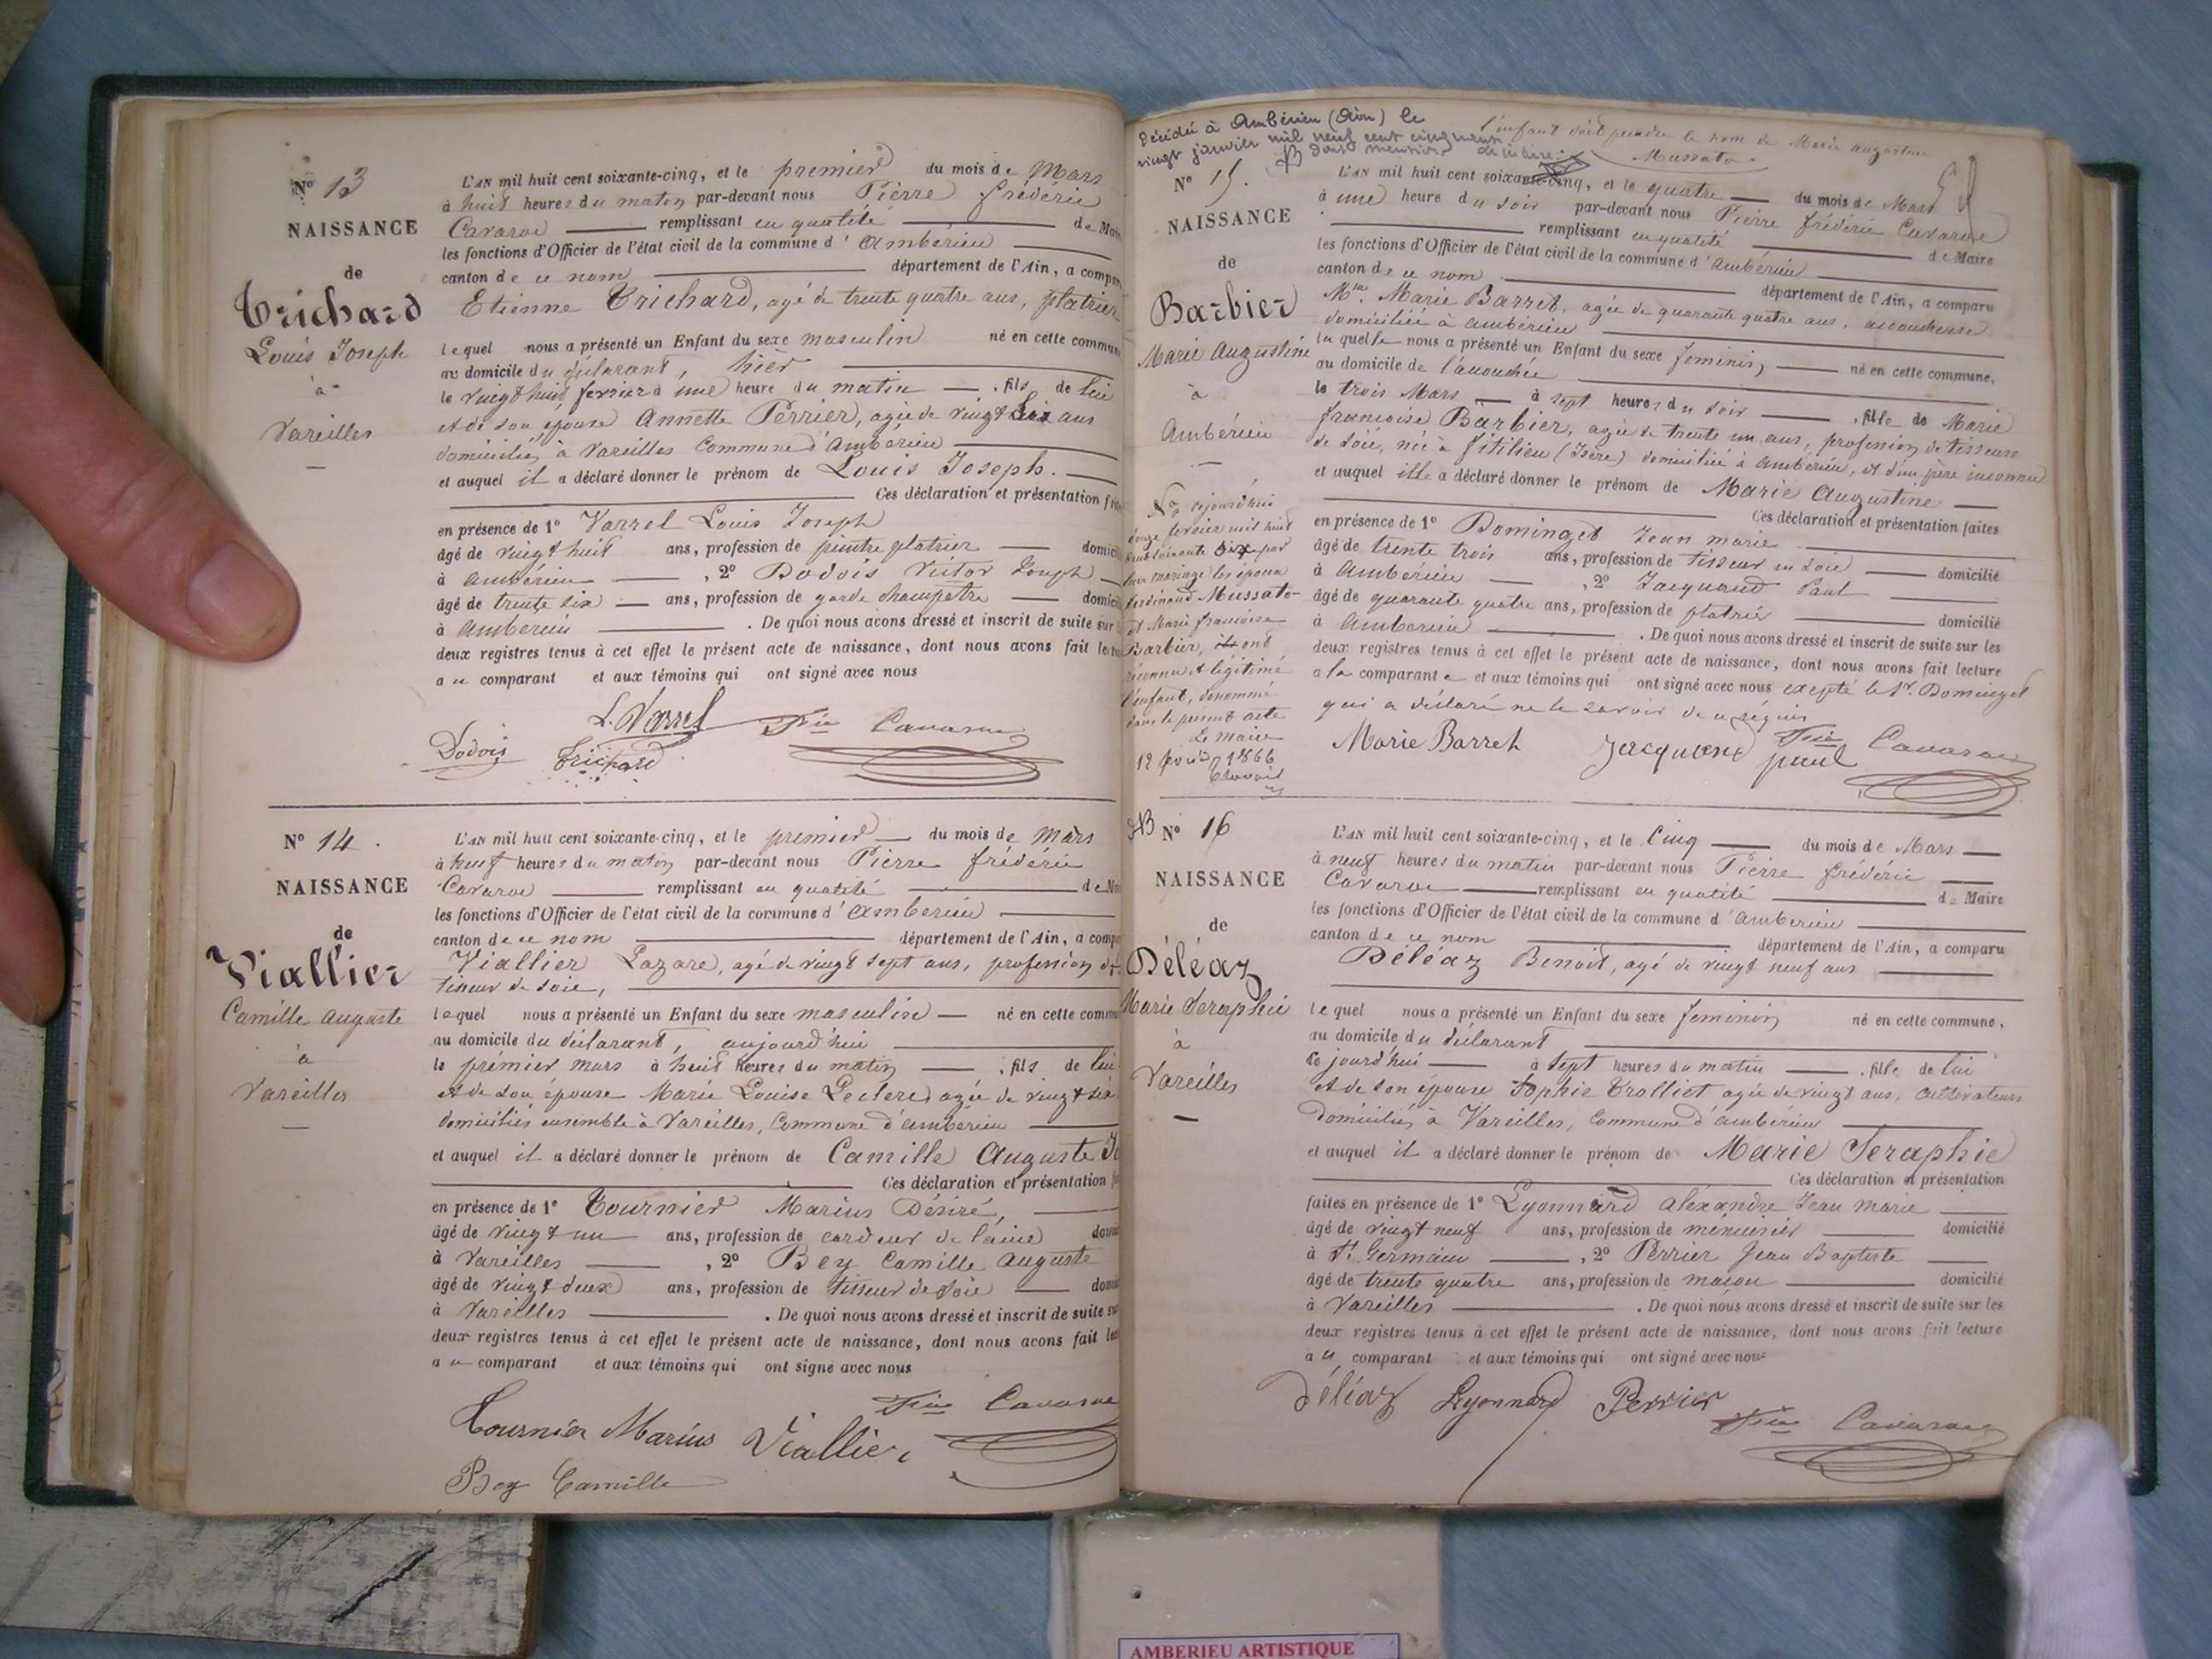 Nº 13
NAISSANCE
de
Trichard
Louis Joseph
à
Vareilles
L'AN mil huit cent soixante-cinq, et le premier du mois de Mars
à huit heures du matin par-devant nous Pierre frédéric
Cavaroc remplissant en qualité de Mai
les fonctions d'Officier de l'état civil de la commune d'Ambérieu
canton de ce nom département de l'Ain, a compar
Etienne Trichard, agé de trente quatre ans, platrier
lequel nous a présenté un Enfant du sexe masculin né en cette commun
au domicile du déclarant, hier
le vingt huit fevrier à une heure du matin, fils de lui
et de son épouse Annette Perrier, agée de vingt six ans
domiciliés à Vareilles Commune d'Ambérieu
et auquel il a déclaré donner le prénom de Louis Joseph.
Ces déclaration et présentation fai
en présence de 1º Varrel Louis Joseph
âgé de vingt huit ans, profession de peintre platrier domicil
à Ambérieu, 2º Dodois Victor Joseph
âgé de trente six ans, profession de garde champetre domicil
à Ambérieu. De quoi nous avons dressé et inscrit de suite sur
deux registres tenus à cet effet le présent acte de naissance, dont nous avons fait lectu
a ce comparant et aux témoins qui ont signé avec nous
L. Varrel
Cavaroc
Dodois Trichard
Nº 14.
NAISSANCE
de
Viallier
Camille Auguste
à
Vareilles
L'AN mil huit cent soixante-cinq, et le premier du mois de Mars
à neuf heures du matin par-devant nous Pierre frédéric
Cavaroc remplissant en qualité de Mai
les fonctions d'Officier de l'état civil de la commune d'Ambérieu
canton de ce nom département de l'Ain, a compa
Viallier Lazare, agé de vingt sept ans, profession de
tisseur de soie,
lequel nous a présenté un Enfant du sexe masculin né en cette commu
au domicile du déclarant, aujourd'hui
le premier mars à huit heures du matin, fils de lui
et de son épouse Marie Louise Leclerc agée de vingt six
domiciliés ensemble à Vareilles, Commune d'ambérieu
et auquel il a déclaré donner le prénom de Camille Auguste
Ces déclaration et présentation fa
en présence de 1º Tournier Marius Désiré,
âgé de vingt un ans, profession de cardeur de laine domi
à Vareilles, 2º Bey Camille Auguste
âgé de vingt deux ans, profession de tisseur de soie dom
à Vareilles. De quoi nous avons dressé et inscrit de suite sur
deux registres tenus à cet effet le présent acte de naissance, dont nous avons fait lec
a ce comparant et aux témoins qui ont signé avec nous
Cavaroc
Tournier Marius Viallier
Bey Camille
Décédée à Ambérieu (Ain) le
vingt janvier mil neuf cent cinquante
dont mention
l'enfant doit prendre le nom de Marie Augustine
Mussato
Nº 15.
NAISSANCE
de
Barbier
Marie Augustine
à
Ambérieu
L'AN mil huit cent soixante-cinq, et le quatre du mois de Mars
à une heure du soir par-devant nous Pierre frédéric Cavaroc
remplissant en qualité de Maire
les fonctions d'Officier de l'état civil de la commune d'Ambérieu
canton de ce nom département de l'Ain, a comparu
Mme. Marie Barret, agée de quarante quatre ans, accoucheuse
domiciliée à Ambérieu
laquelle nous a présenté un Enfant du sexe feminin né en cette commune,
au domicile de l'accouchée
le trois Mars à sept heures du soir, fille de Marie
françoise Barbier, agée de trente un ans, profession de tisseuse
de soie, née à fitilieu (Isère) domiciliée à Ambérieu, et d'un père inconnu
et auquel elle a déclaré donner le prénom de Marie Augustine
Ces déclaration et présentation faites
en présence de 1º Dominget Jean marie
âgé de trente trois ans, profession de tisseur en soie domicilié
à Ambérieu, 2º Jacquand Paul
âgé de quarante quatre ans, profession de platrier domicilié
à Ambérieu. De quoi nous avons dressé et inscrit de suite sur les
deux registres tenus à cet effet le présent acte de naissance, dont nous avons fait lecture
a la comparante et aux témoins qui ont signé avec nous excepté le Sr. Dominget
qui a déclaré ne le savoir de ce réquis
Marie Barret Jacquand paul Cavaroc
cejourd'hui
douze fevrier mil huit
cent soixante six par
leur mariage les époux
ferdinand Mussato
et Marie françoise
Barbier, ont
réconnu et légitimé
l'enfant, denommé
dans le présent acte
Le maire
12 fevrier 1866
Nº 16
NAISSANCE
de
Déléaz
Marie Seraphie
à
Vareilles
L'AN mil huit cent soixante-cinq, et le Cinq du mois de Mars
à neuf heures du matin par-devant nous Pierre frédéric
Cavaroc remplissant en qualité de Maire
les fonctions d'Officier de l'état civil de la commune d'Ambérieu
canton de ce nom département de l'Ain, a comparu
Déléaz Benoit, agé de vingt neuf ans
lequel nous a présenté un Enfant du sexe feminin né en cette commune,
au domicile du déclarant
ce jourd'hui à sept heures du matin, fille de lui
et de son épouse Sophie Trolliet agée de vingt ans, cultivateurs
Domiciliés à Vareilles, Commune d'ambérieu
et auquel il a déclaré donner le prénom de Marie Seraphie
Ces déclaration et présentation
faites en présence de 1º Lyonnard Alexandre Jean Marie
âgé de vingt neuf ans, profession de ménuisier domicilié
à St. Germain, 2º Perrier Jean Baptiste
âgé de trente quatre ans, profession de maçon domicilié
à Vareilles. De quoi nous avons dressé et inscrit de suite sur les
deux registres tenus à cet effet le présent acte de naissance, dont nous avons fait lecture
a ce comparant et aux témoins qui ont signé avec nous
Déléaz Lyonnard Perrier Cavaroc
AMBERIEU ARTISTIQUE